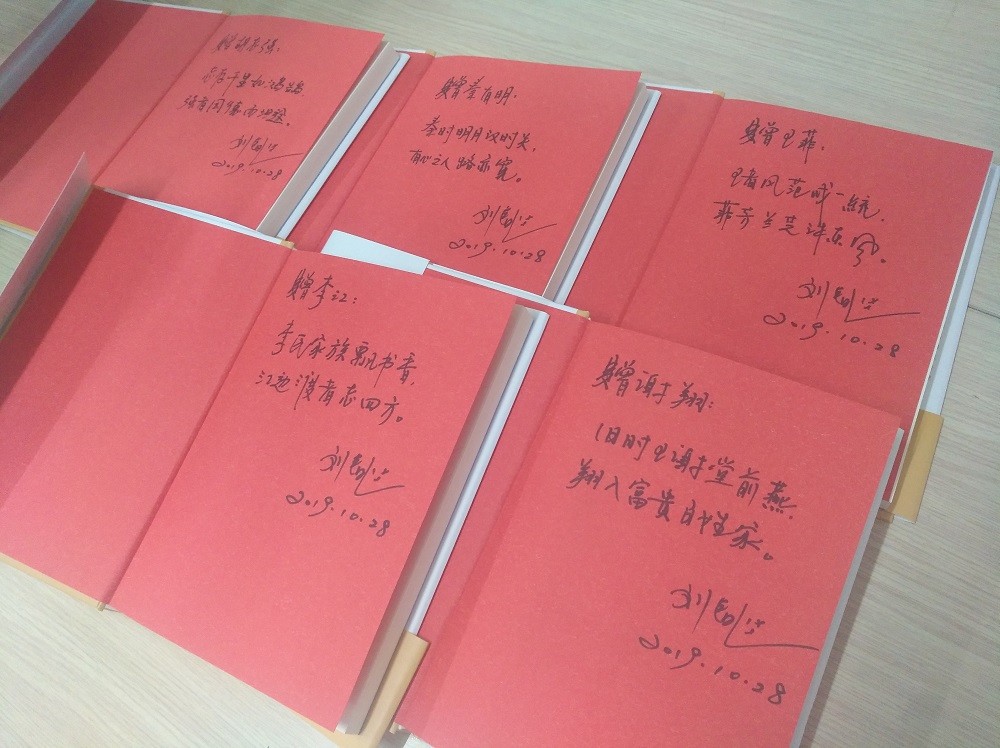 赠
千里
刘
2019.10.28
赠秦有明:
秦时明月汉时关,
有心之人路亦宽。
刘
2019.10.28
赠王菲:
王者风范成一统,
菲芳兰芝 东风。
刘
2019.10.28
赠李江:
李氏家族飘书香,
江边渡者志四方。
刘
2019.10.28
赠谢翔:
旧时王谢堂前燕,
翔入富贵百姓家。
刘
2019.10.28